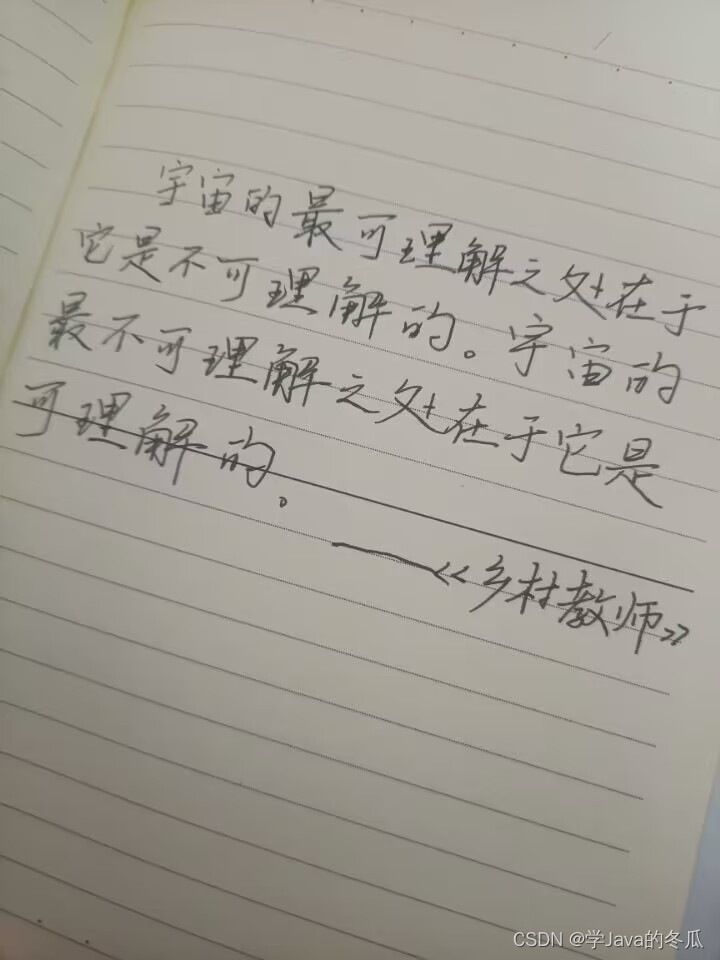 宇宙的最可理解之处在于
它是不可理解的。宇宙的
最不可理解之处在于它是
可理解的。
——《乡村教师》
CSDN @学Java的冬瓜